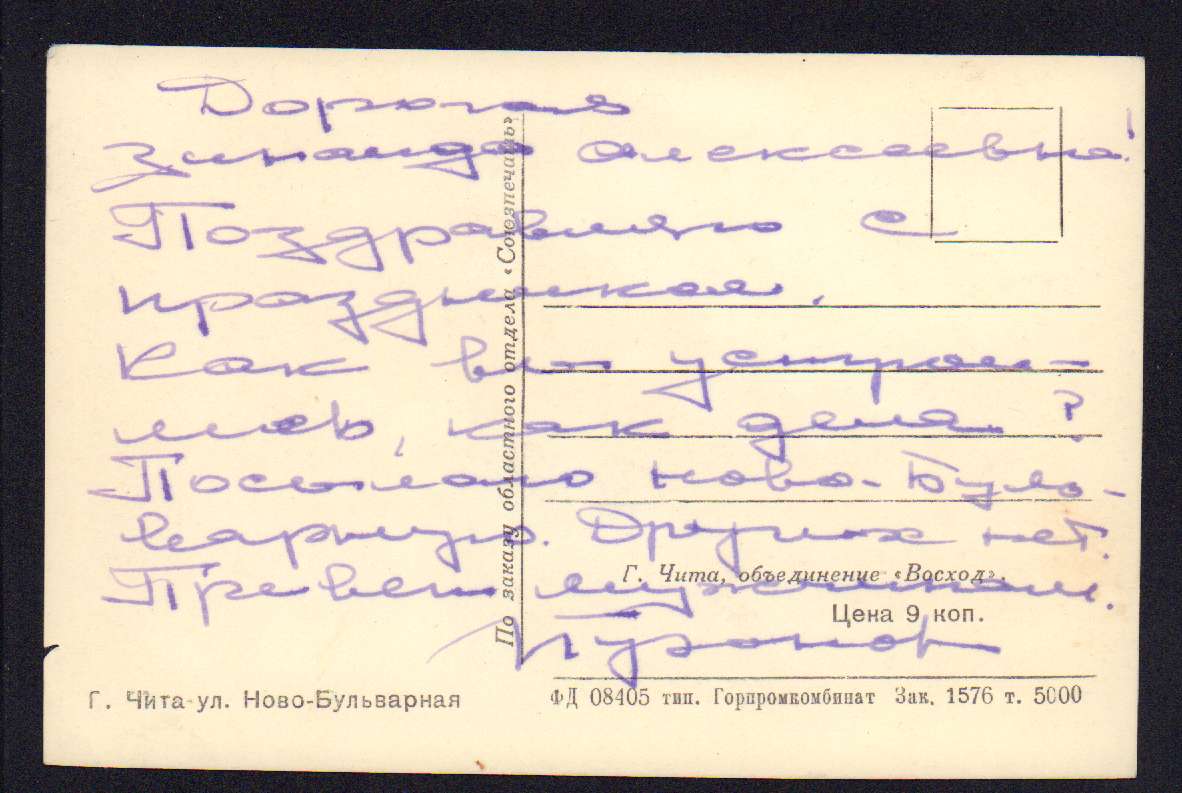 Дорогая
Зинаида Алексеевна!
Поздравляю с
праздником.
Как вы устрои-
лись, как дела?
Посылаю Ново-Буль-
варную. Других нет.
Привет мужчинам.
По заказу областного отдела «Союзпечать»
Г. Чита, объединение «Восход».
Цена 9 коп.
Г. Чита-ул. Ново-Бульварная
ФД 08405 тип. Горпромкомбинат Зак. 1576 т. 5000